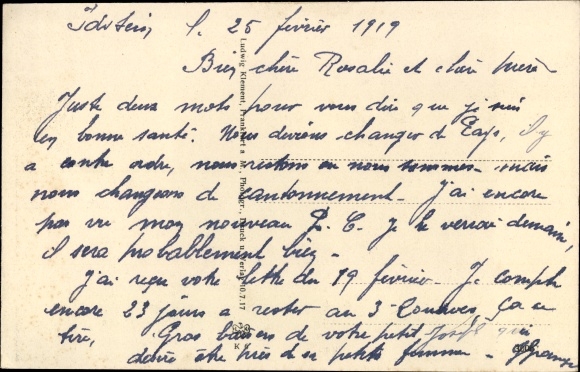 Idstein, l. 25 février 1919
Bien chère Rosalie et chère mère
Juste deux mots pour vous dire que je suis
en bonne santé. Nous devions changer de Pays, il y
a contre ordre, nous restons ou nous sommes mais
nous changeons de cantonnement. J'ai encore
pas vu mon nouveau P. C. Je le verrai demain,
il sera probablement bien.
j'ai reçu votre lettre du 19 février. Je compte
encore 23 jours a rester au 3e Zouaves, ça se
tire, Gros baisers de votre petit Joseph qui
désire être près de sa petite femme.
Ludwig Klement, Frankfurt a. M., Photogr., Druck u. Verlag 10.7.17